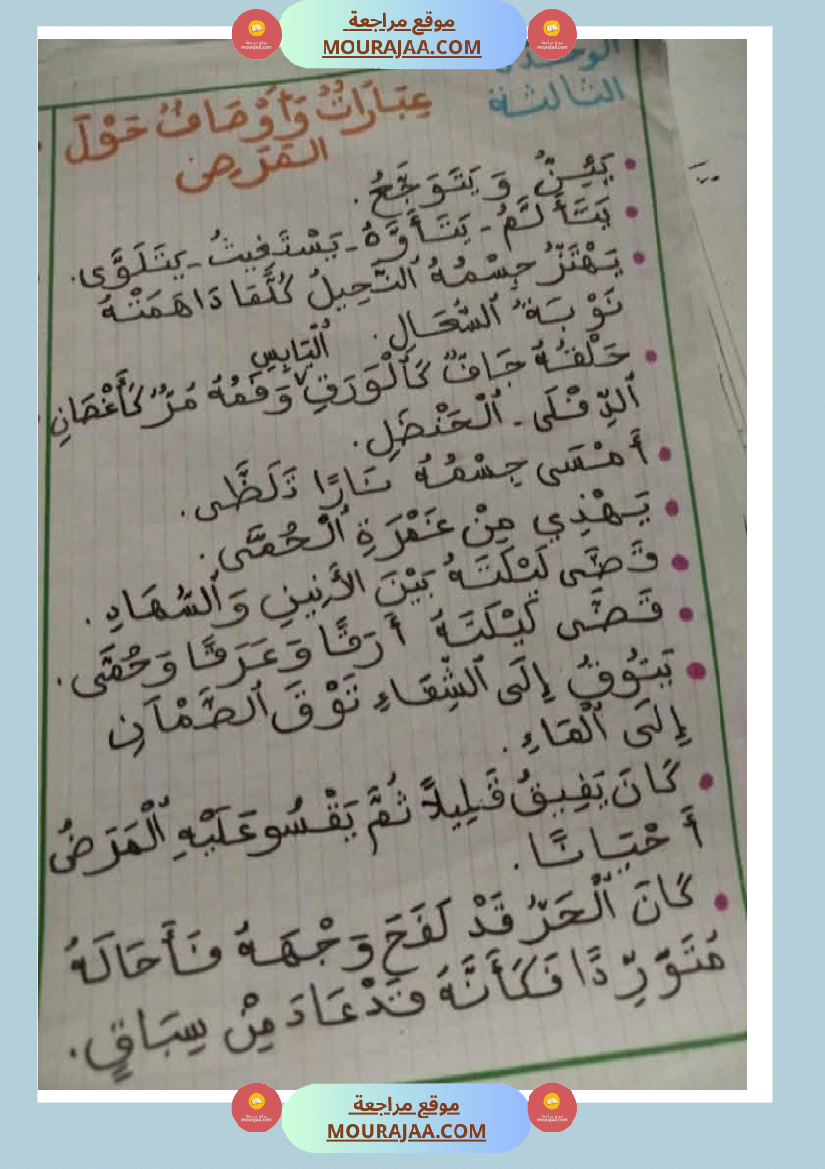 موقع مراجعة
MOURAJAA.COM
الوحدة
الثالثة
عِبَارَاتٌ وَأَوْصَافٌ حَوْلَ
المَرَضِ
يَئِنُّ وَ يَتَوَجَّعُ .
يَتَأَلَّمُ - يَتَأَوَّهُ - يَسْتَغِيثُ - يَتَلَوَّى .
يَهْتَزُّ جِسْمُهُ النَّحِيلُ كُلَّمَا دَاهَمَتْهُ
نَوْبَةُ السُّعَالِ .
حَلْقُهُ جَافٌّ كَالْوَرَقِ الْيَابِسِ وَفَمُهُ مُرٌّ كَأَغْصَانِ
الدِّفْلَى - الْحَنْضَلِ .
أَمْسَى جِسْمُهُ نَارًا تَلَظَّى .
يَهْذِي مِنْ غَمْرَةِ الْحُمَّى .
قَضَّى لَيْلَتَهُ بَيْنَ الأَنِينِ وَالسُّهَادِ .
قَضَّى لَيْلَتَهُ أَرَقًا وَعَرَقًا وَحُمَّى .
يَتُوقُ إِلَى الشِّفَاءِ تَوْقَ الظَّمْآنِ
إِلَى الْمَاءِ .
كَانَ يَفِيقُ قَلِيلاً ثُمَّ يَقْسُو عَلَيْهِ الْمَرَضُ
أَحْيَانًا .
كَانَ الْحَرُّ قَدْ لَفَحَ وَجْهَهُ فَأَحَالَهُ
مُتَوَرِّدًا فَكَأَنَّهُ قَدْ عَادَ مِنْ سِبَاقٍ .
موقع مراجعة
MOURAJAA.COM